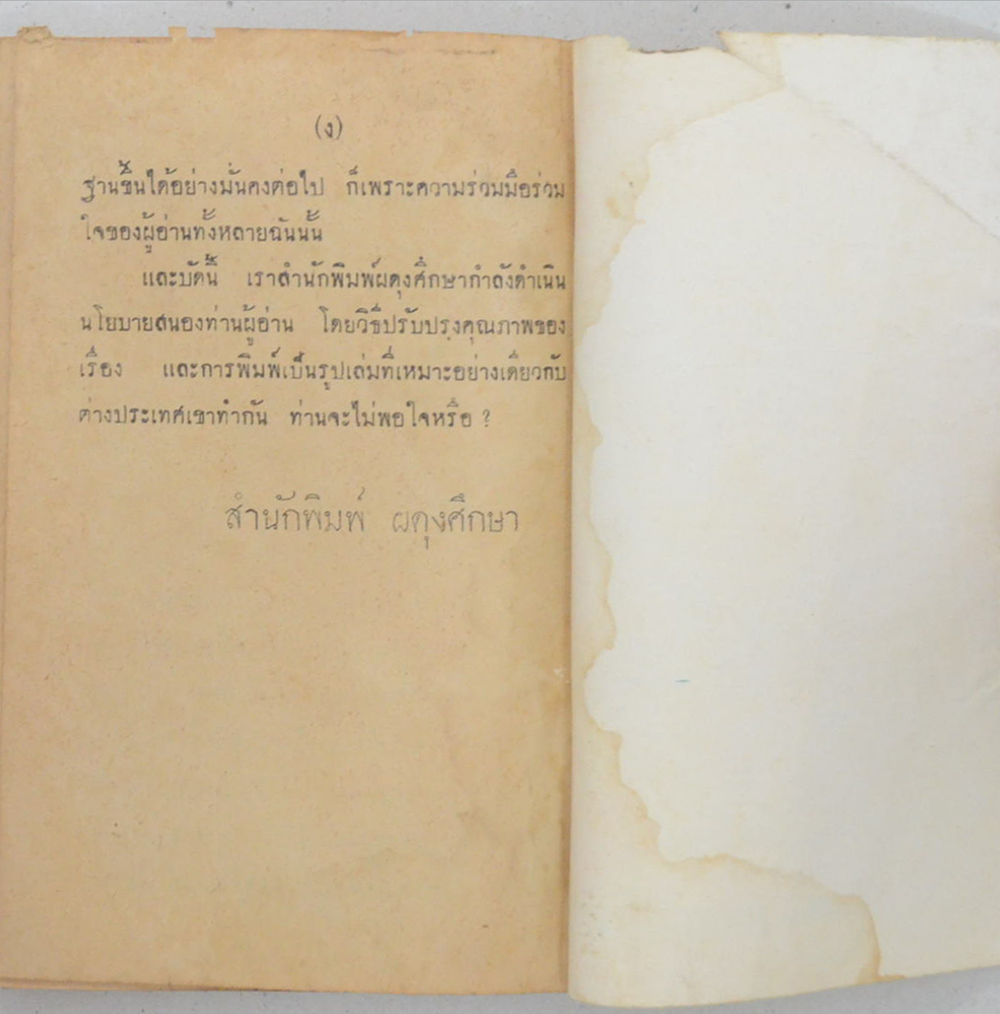 (ง)
ฐานขึ้นได้อย่างมั่นคงต่อไป ก็เพราะความร่วมมือร่วม
ใจของผู้อ่านทั้งหลายฉันนั้น
และบัดนี้ เราสำนักพิมพ์ผดุงศึกษากำลังดำเนิน
นโยบายสนองท่านผู้อ่าน โดยวิธีปรับปรุงคุณภาพของ
เรื่อง และการพิมพ์เป็นรูปเล่มที่เหมาะอย่างเดียวกับ
ต่างประเทศเขาทำกัน ท่านจะไม่พอใจหรือ ?
สำนักพิมพ์ ผดุงศึกษา